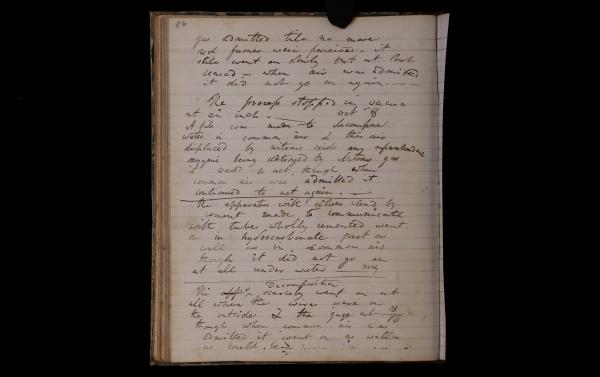 86
gas admitted till no more
red fumes were perceived. it
still went on slowly but at last
ceased – when air was admitted
it did not go on again. –
The process stopped in vacuo
at an inch. – Oct 8
A pile was made to decompose
water in common air & this air
displaced by nitrous oxide any superabundant
oxygene being destroyed by Nitrous gas
it ceased to act, though when
common air was admitted it
continued to act again. –
The apparatus with silver cloud by
cement made to communicate
with tubes wholly cemented went
on in hydrocarbonate just as
well as in common air
though it did not go on
at all under water
Decomposition
The scarcely went on at
all when the wires were on
the outside & the gage at 13/10
though when common air was
admitted it went on as well
as could be